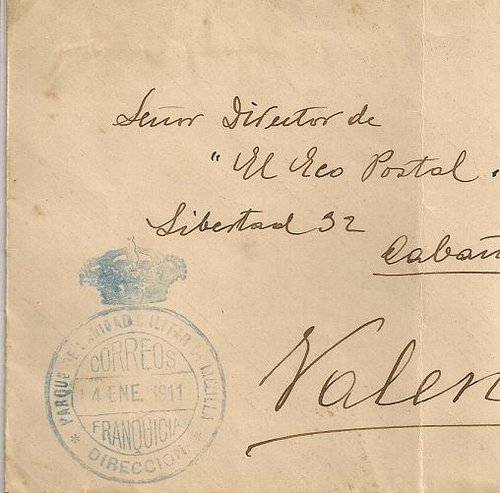 Señor Director de
" El Eco Postal
Libertad 32
Cabañ
Valen
PARQUE DE SANIDAD MILITAR DE MELILLA
CORREOS
14 ENE. 1911
FRANQUICIA
* DIRECCION *